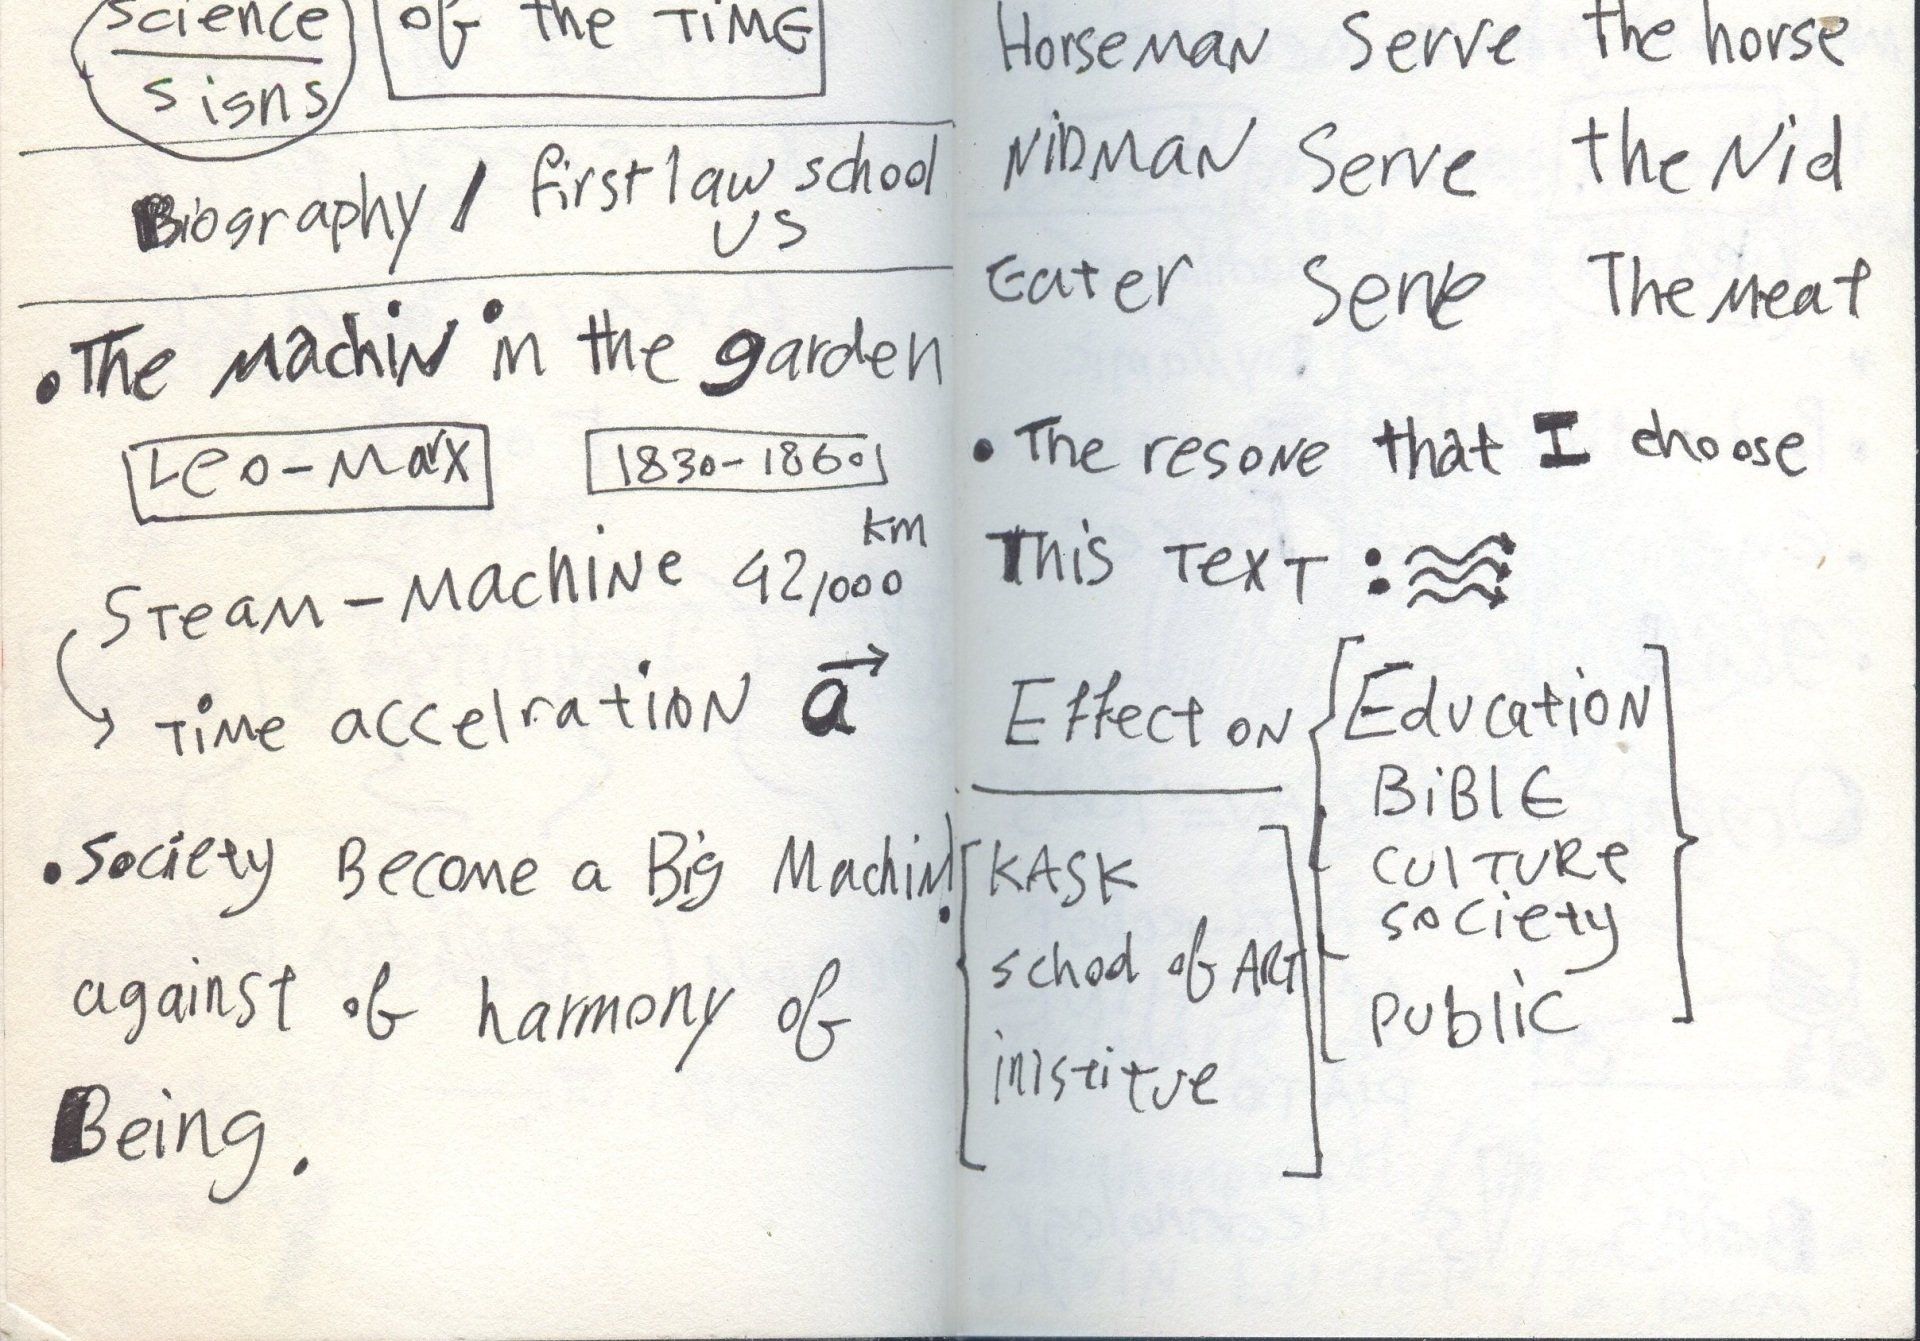 science
signs
of the TIME
Biography / first law school
US
• The Machin in the garden
Leo-Marx
1830-1860
km
STeam-Machine 42,000
Time accelration a
• Society Become a Big Machin!
against of harmony of
Being.
Horseman Serve the horse
NiDMaN Serve the Nid
Eater Serve The Meat
• The resone that I choose
This Text :
Effect on
Education
BiBlE
CUlTURe
society
public
KASK
school of ART
inistitue